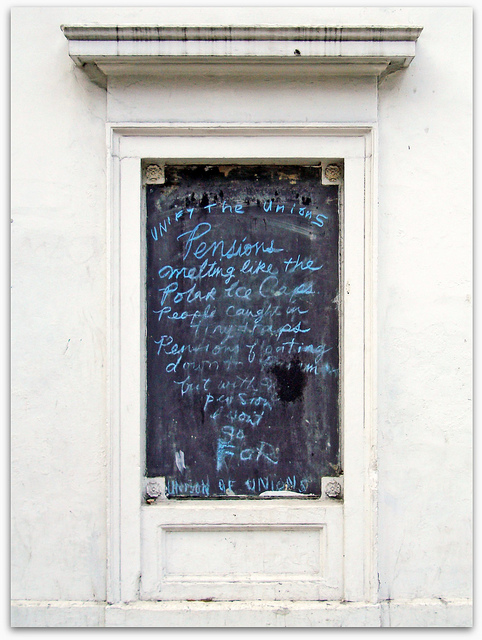 UNIFY The UnionS
Pensions
melting like the
Polar Ice Caps.
People caught in
Pensions floating
down
but with
pension
I won't
go
FOR
UNION OF UNIONS